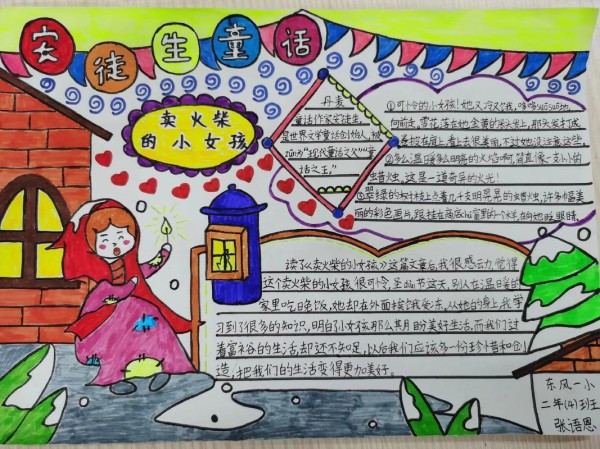 安徒生童话
卖火柴
的小女孩
丹麦
童话作家安徒生,
是世界文学童话创始人,被
称为“现代童话之父”“童
话之王。”
①可怜的小女孩!她又冷又饿,哆哆suōsuō地
向前走。雪花落在她金黄的
在肩上,看上去很美丽,不过她没注意这些。
②多么温暖多么明亮的火焰啊,简直像一支小小的
蜡烛。这是一道奇异的火光!
③翠绿的树枝上点着几千支明晃晃的蜡烛,许多幅美
丽的彩色画片,跟挂在商店
读了《卖火柴的小女孩》这篇文章后,我很感动,觉得
这个卖火柴的小女孩很可怜,圣诞节这天,别人在温暖的
家里吃晚饭,她却在外面挨饿受冻,从她的身上,我学
习到了很多的知识,明白小女孩那么其月盼美好生活,而我们过
着富裕的生活,却还不知足,以后我们应该多一份珍惜和创
造,把我们的生活变得更加美好。
东风一小
二年(4)班
张语恩